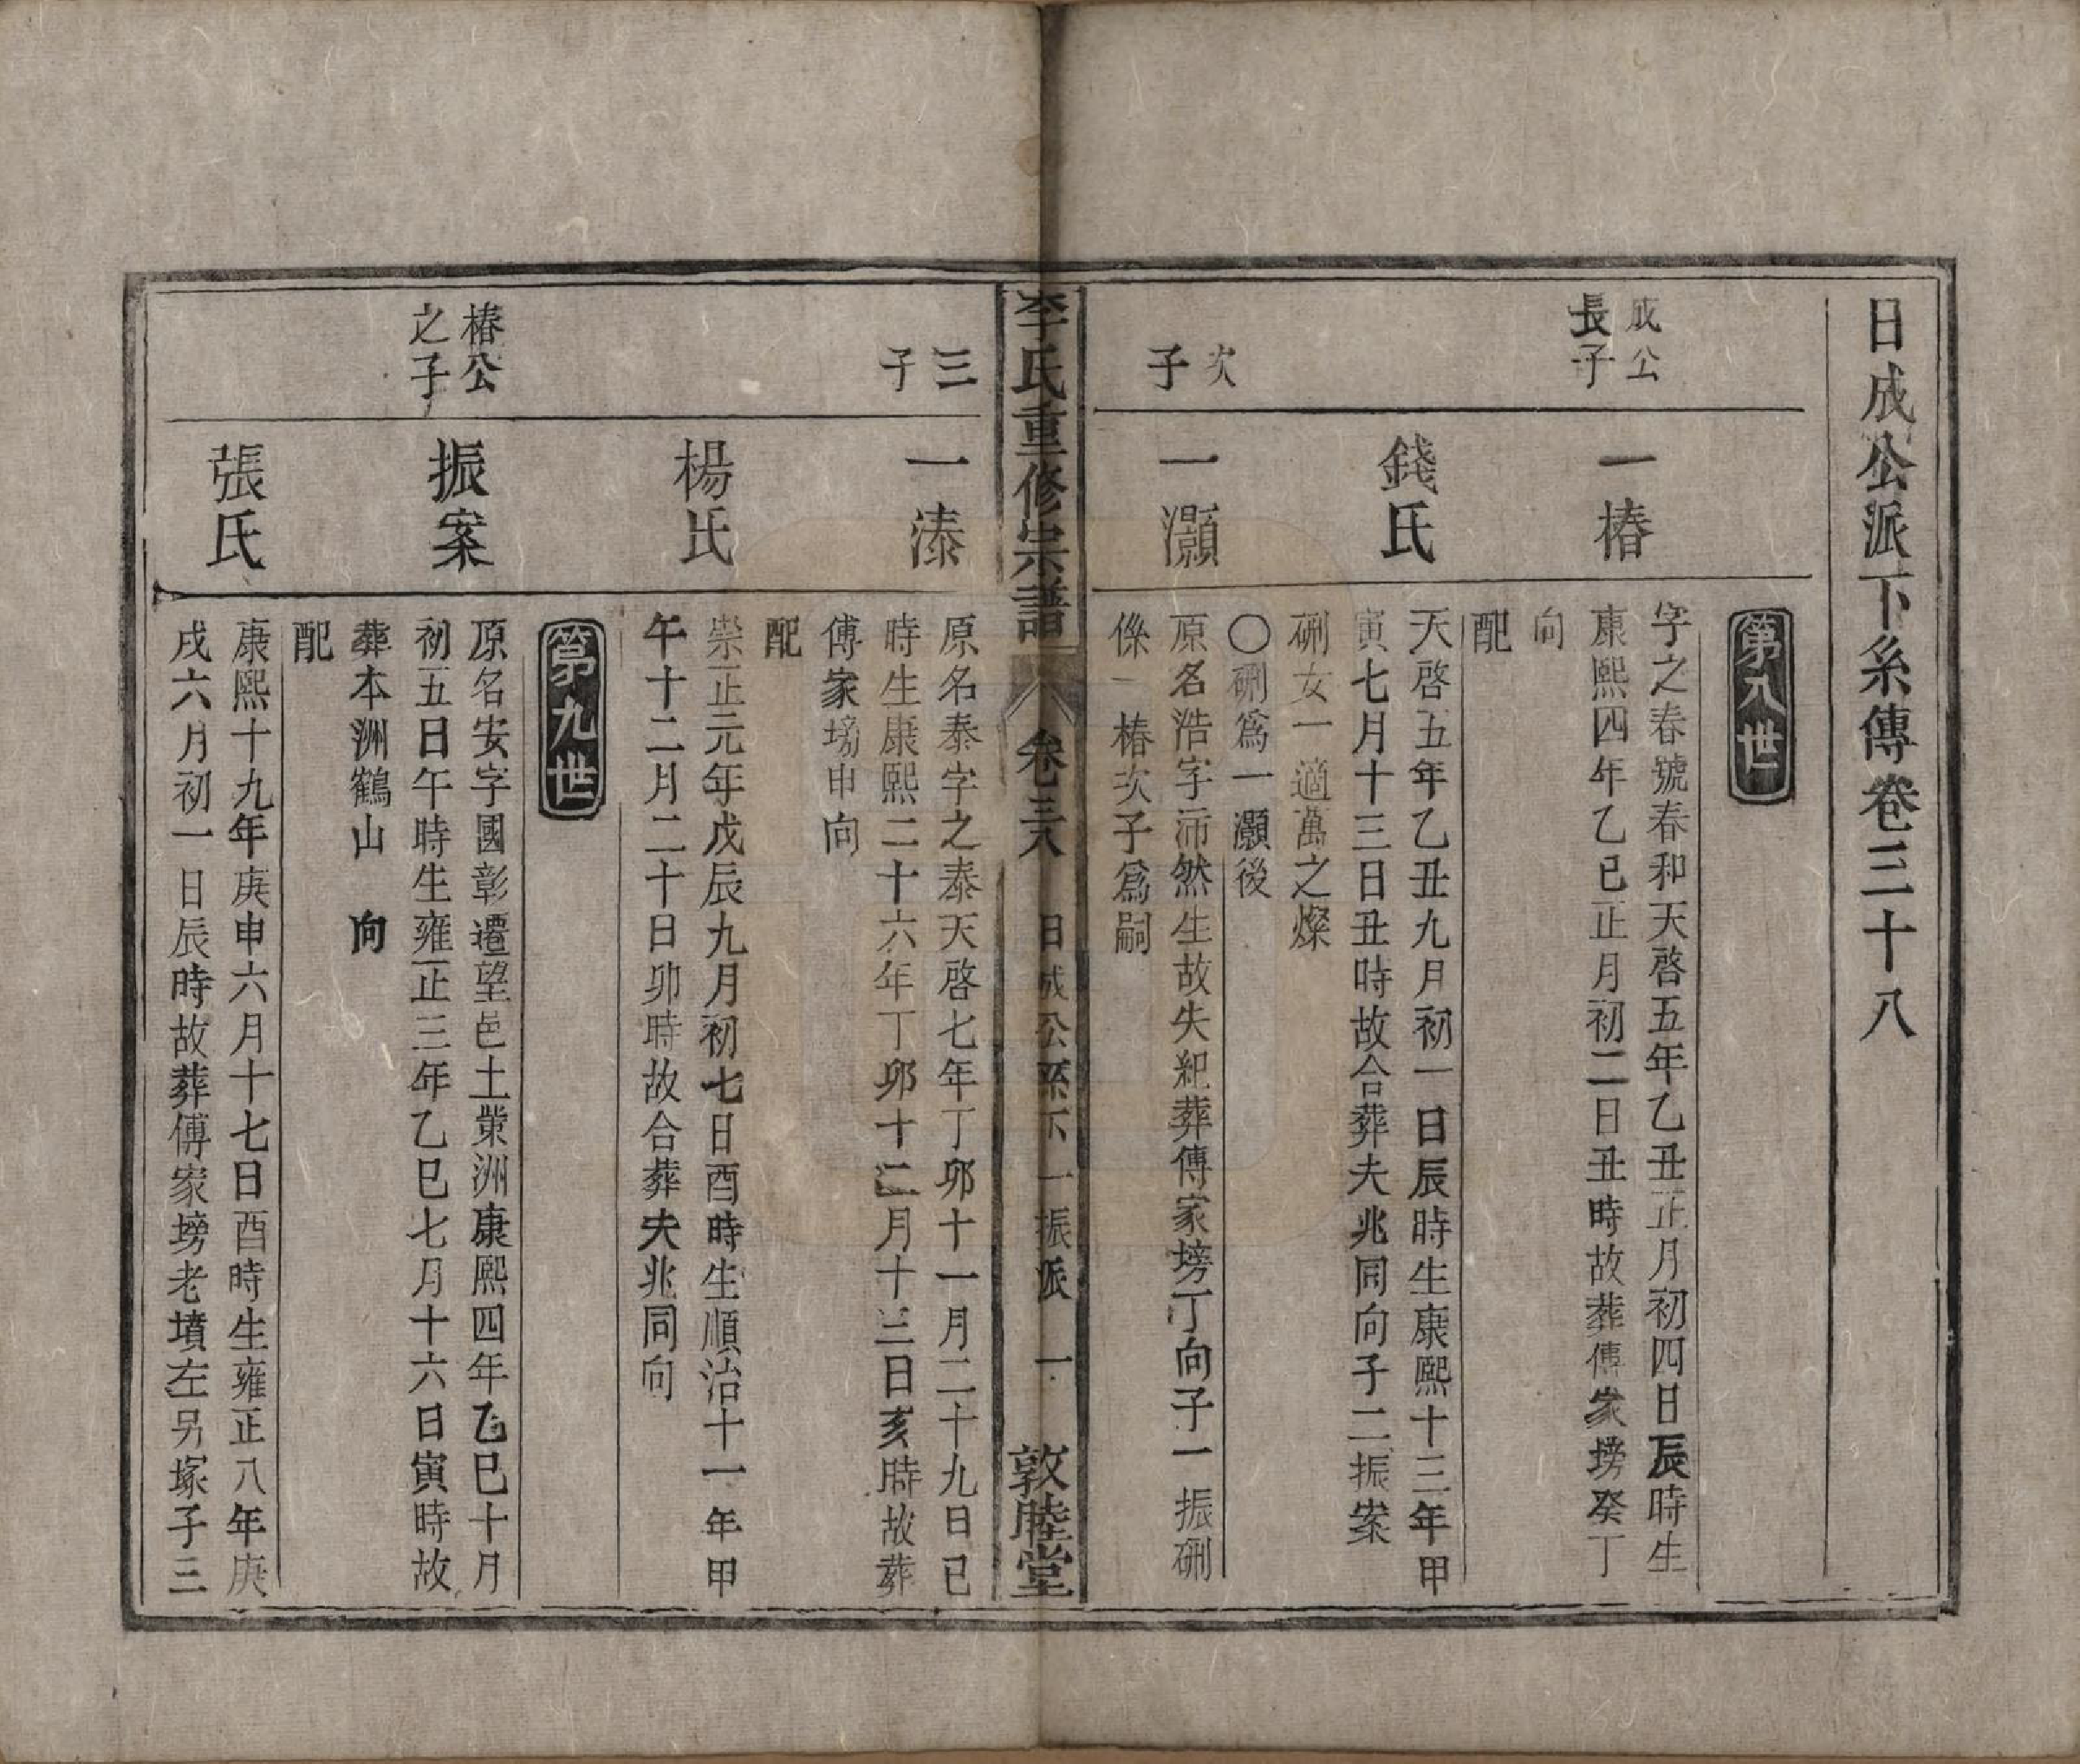 日成公派下系傳卷三十八
第八世
成公
長子
一椿
字之春號春和天啓五年乙丑正月初四日辰時生
康熙四年乙巳正月初二日丑時故葬傅家塝癸丁
向
錢氏
配
天啓五年乙丑九月初一日辰時生康熙十三年甲
寅七月十三日丑時故合葬夫兆同向子二振案
女一適萬之燦
〇爲一灝後
次
子
一灝
原名浩字沛然生故失紀葬傅家塝丁向子一振
係一椿次子爲嗣
李氏重修宗譜
卷三八
日成公系下一振派
一
敦睦堂
三
子
一溙
原名泰字之泰天啓七年丁卯十一月二十九日巳
時生康熙二十六年丁卯十二月十三日亥時故葬
傅家塝申向
楊氏
配
崇正元年戊辰九月初七日酉時生順治十一年甲
午十二月二十日卯時故合葬夫兆同向
第九世
椿公
之子
振案
原名安字國彰遷望邑土業洲康熙四年乙巳十月
初五日午時生雍正三年乙巳七月十六日寅時故
葬本洲鶴山 向
張氏
配
康熙十九年庚申六月十七日酉時生雍正八年庚
戌六月初一日辰時故葬傅家塝老墳左另塚子三